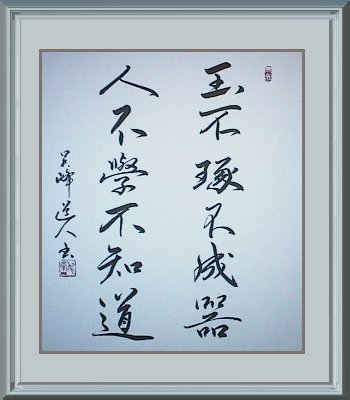 玉不琢不成器
人不學不知道
道人书